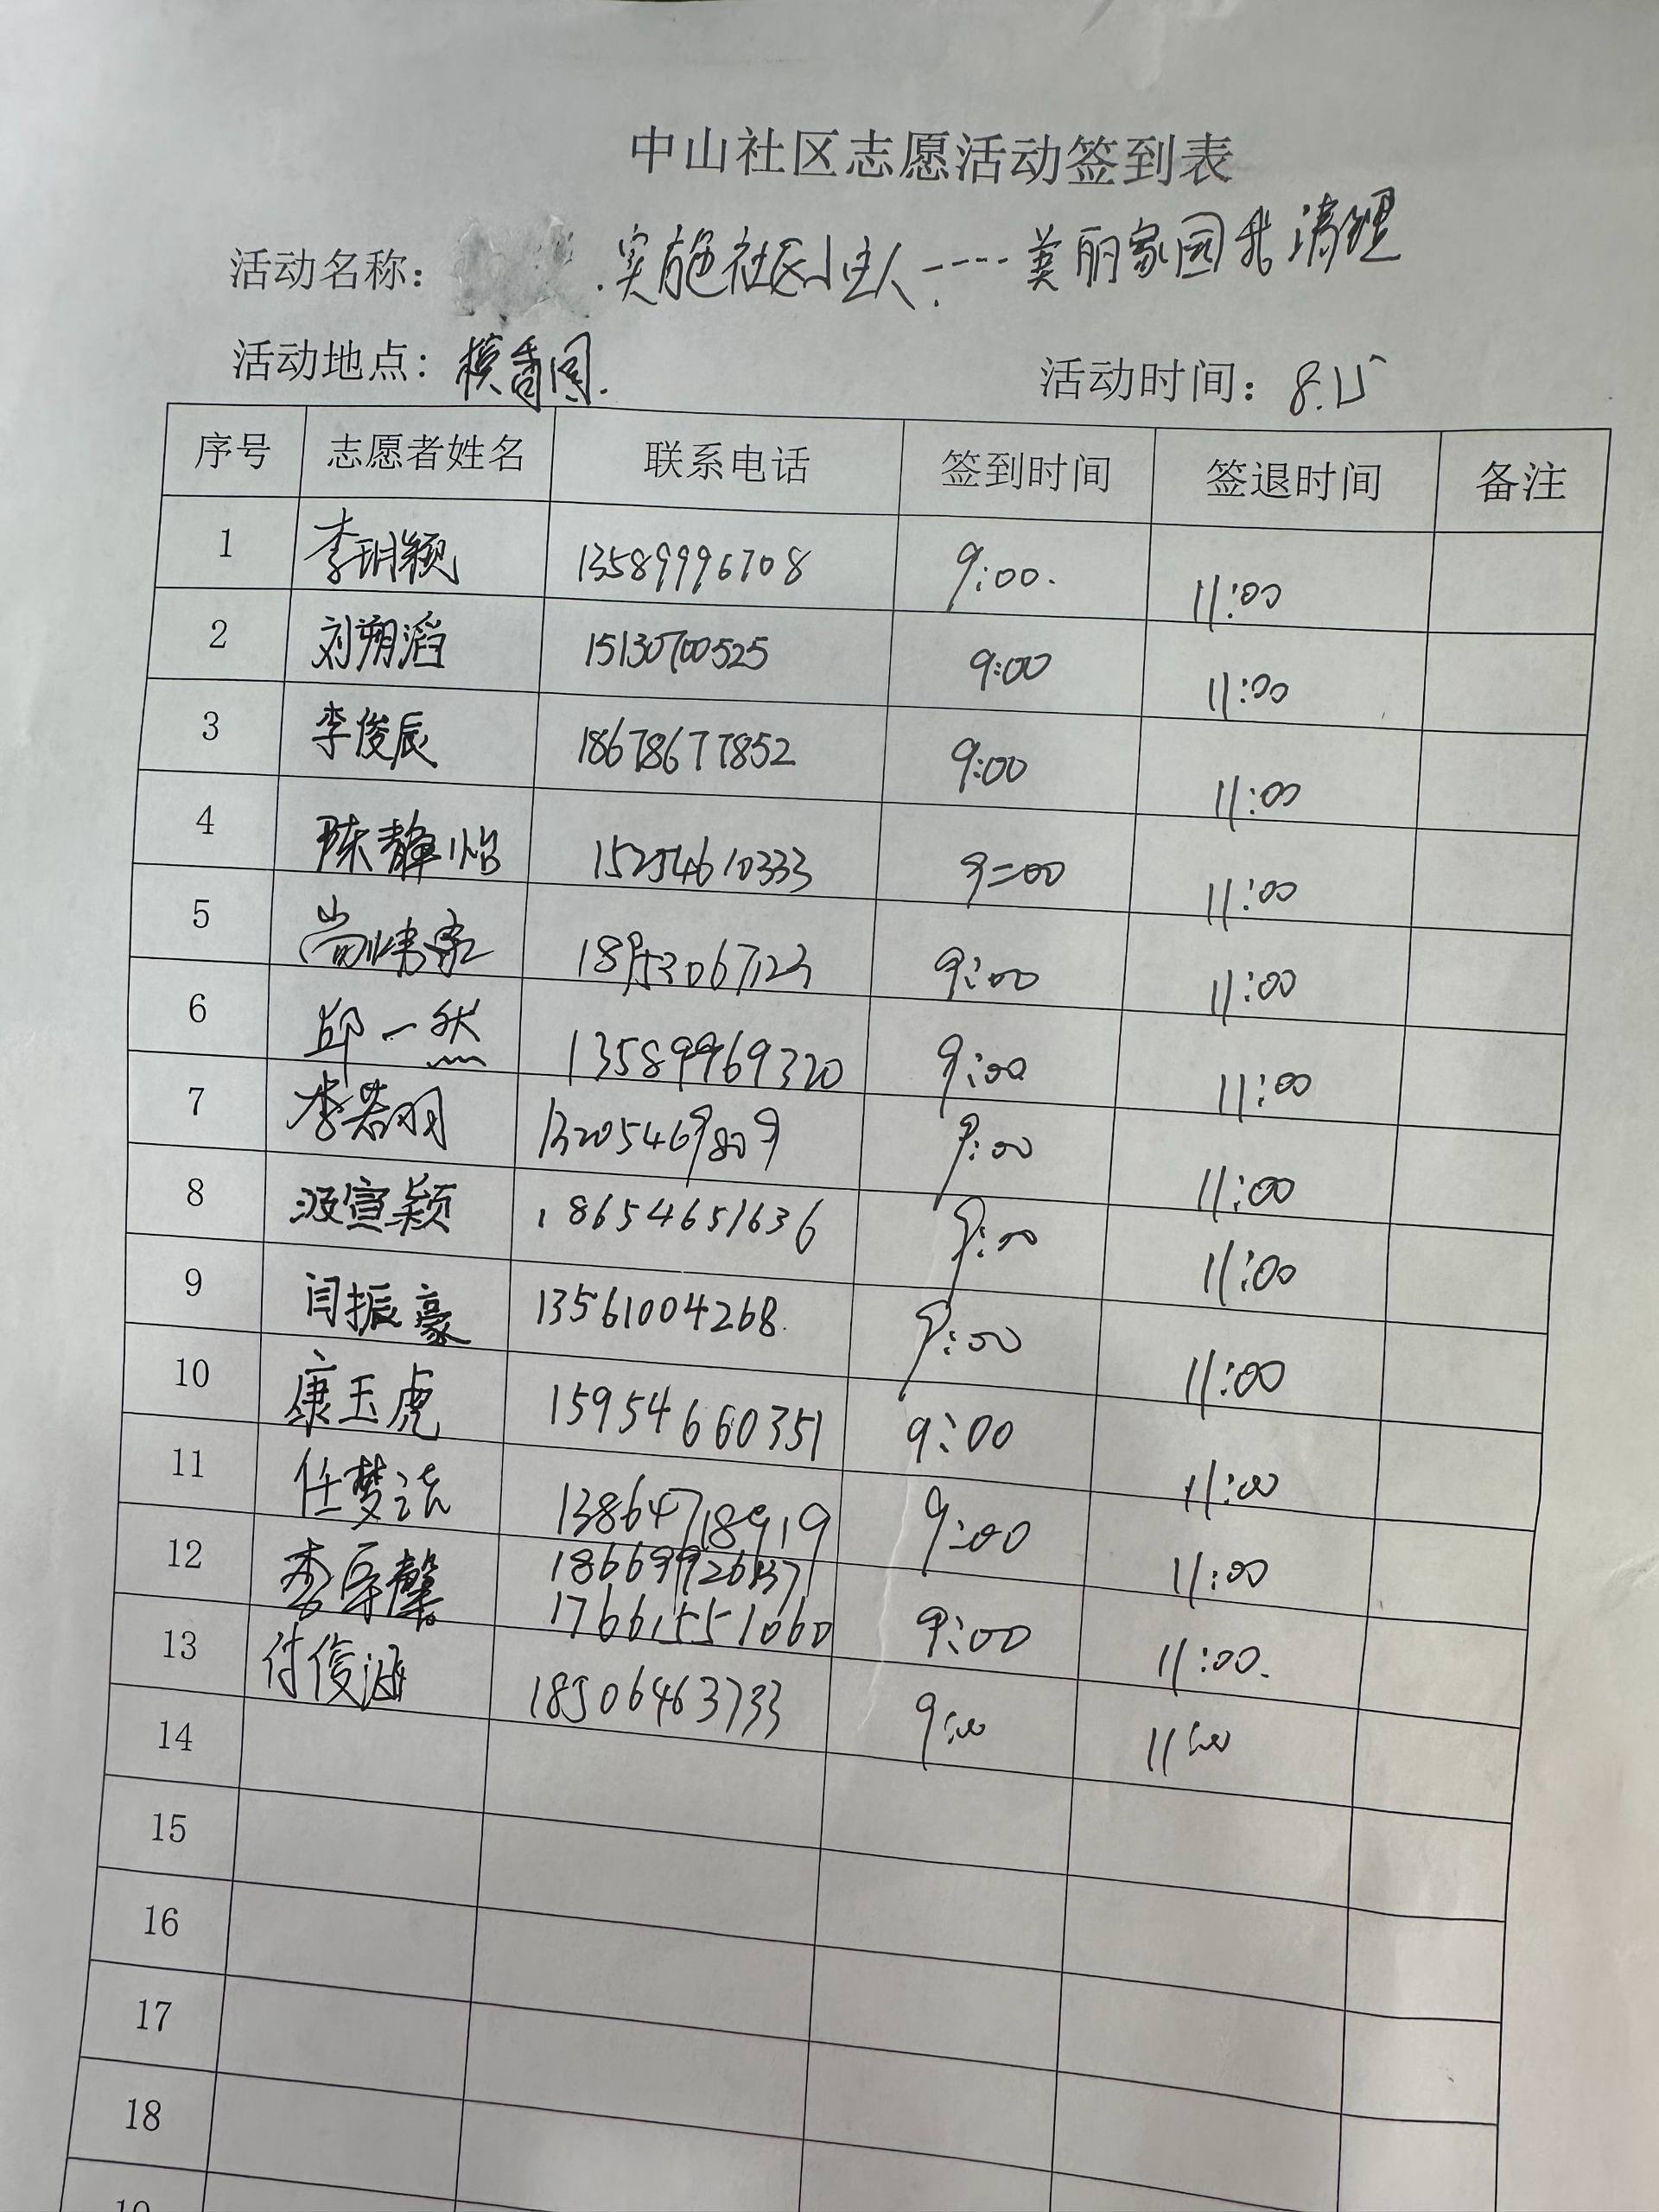 中山社区志愿活动签到表
活动名称: 实施社区小主人----美丽家园我清理
活动地点: 香园.
活动时间: 8.15
序号 志愿者姓名 联系电话 签到时间 签退时间 备注
1 李玥颖 13589996708 9:00. 11:00
2 刘朔滔 15130700525 9:00 11:00
3 李俊辰 18678677852 9:00 11:00
4 陈静怡 15254610333 9:00 11:00
5 尚 18953067123 9:00 11:00
6 邱一然 13589969320 9:00 11:00
7 李若羽 13205469809 9:00 11:00
8 宣颖 18654651636 9:00 11:00
9 闫振豪 13561004268. 9:00 11:00
10 康玉虎 15954660351 9:00 11:00
11 任梦洁 13864718919 9:00 11:00
12 李 馨 17661551060 9:00 11:00.
13 付俊涵 18506463733 9:00 11:00
14
15
16
17
18